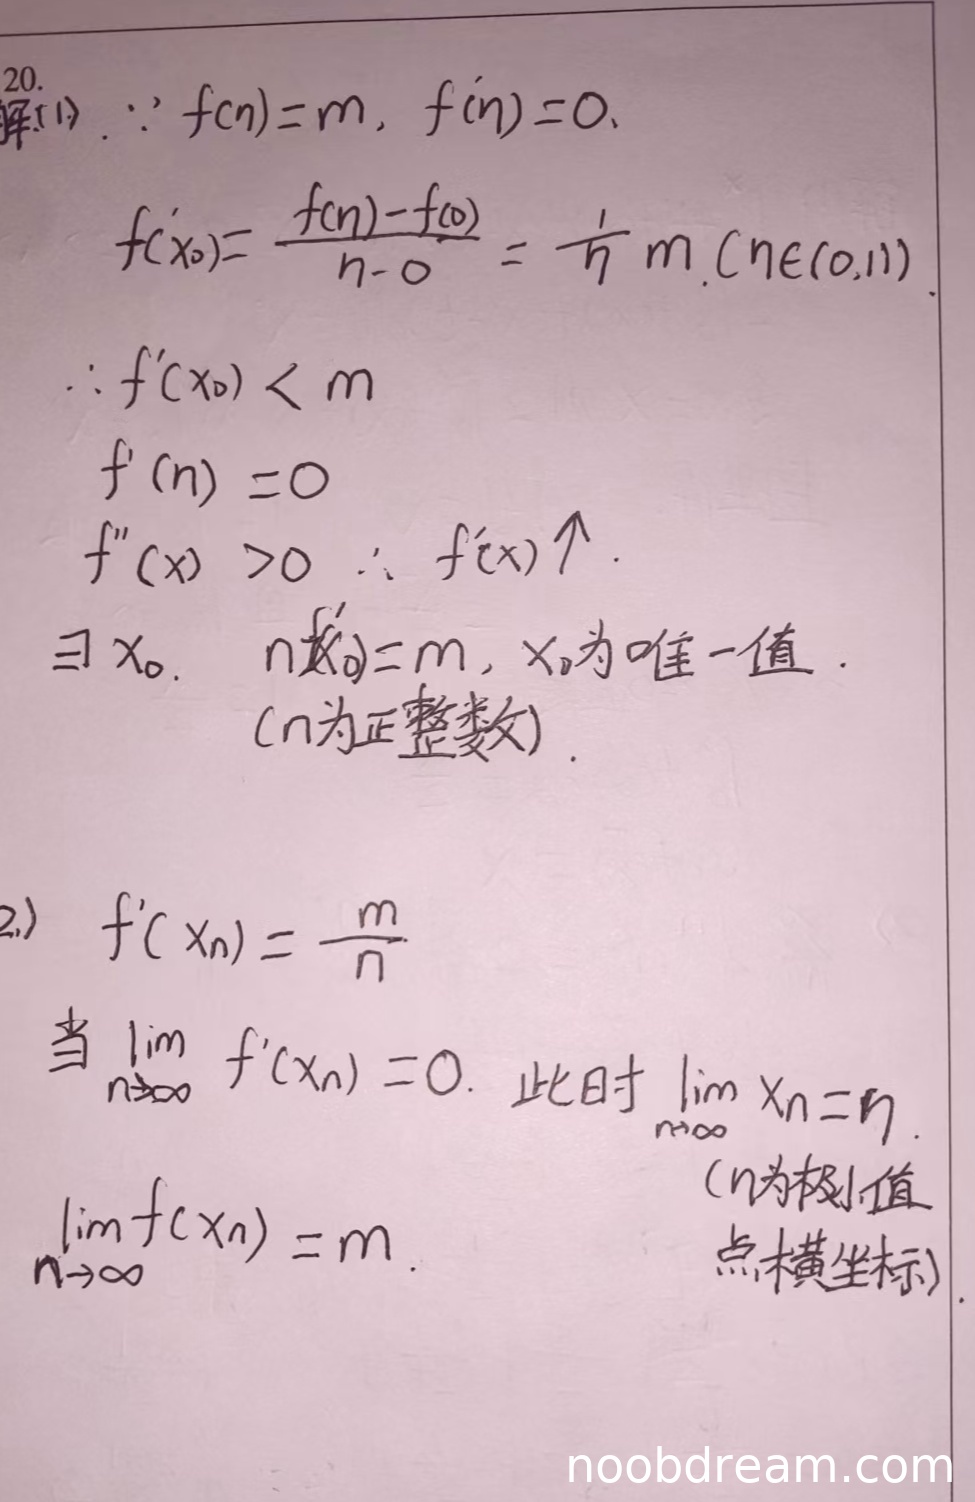 20.
解:(1). ∵ f(η)=m, f'(η)=0.
f'(x₀)= \frac{f(η)-f(0)}{η-0} = \frac{1}{η} m.(η∈(0,1)).
∴ f'(x₀) < m
f'(η) =0
f''(x) >0 ∴ f'(x)↑.
∃ x₀. nf'(x₀)=m, x₀为唯一值.
(n为正整数).
2.) f'(xₙ) = \frac{m}{n}
当 \lim_{n→∞} f'(xₙ) =0. 此时 \lim_{n→∞} xₙ=η.
(η为极小值
点横坐标).
\lim_{n→∞} f(xₙ) =m.
noobdream.com